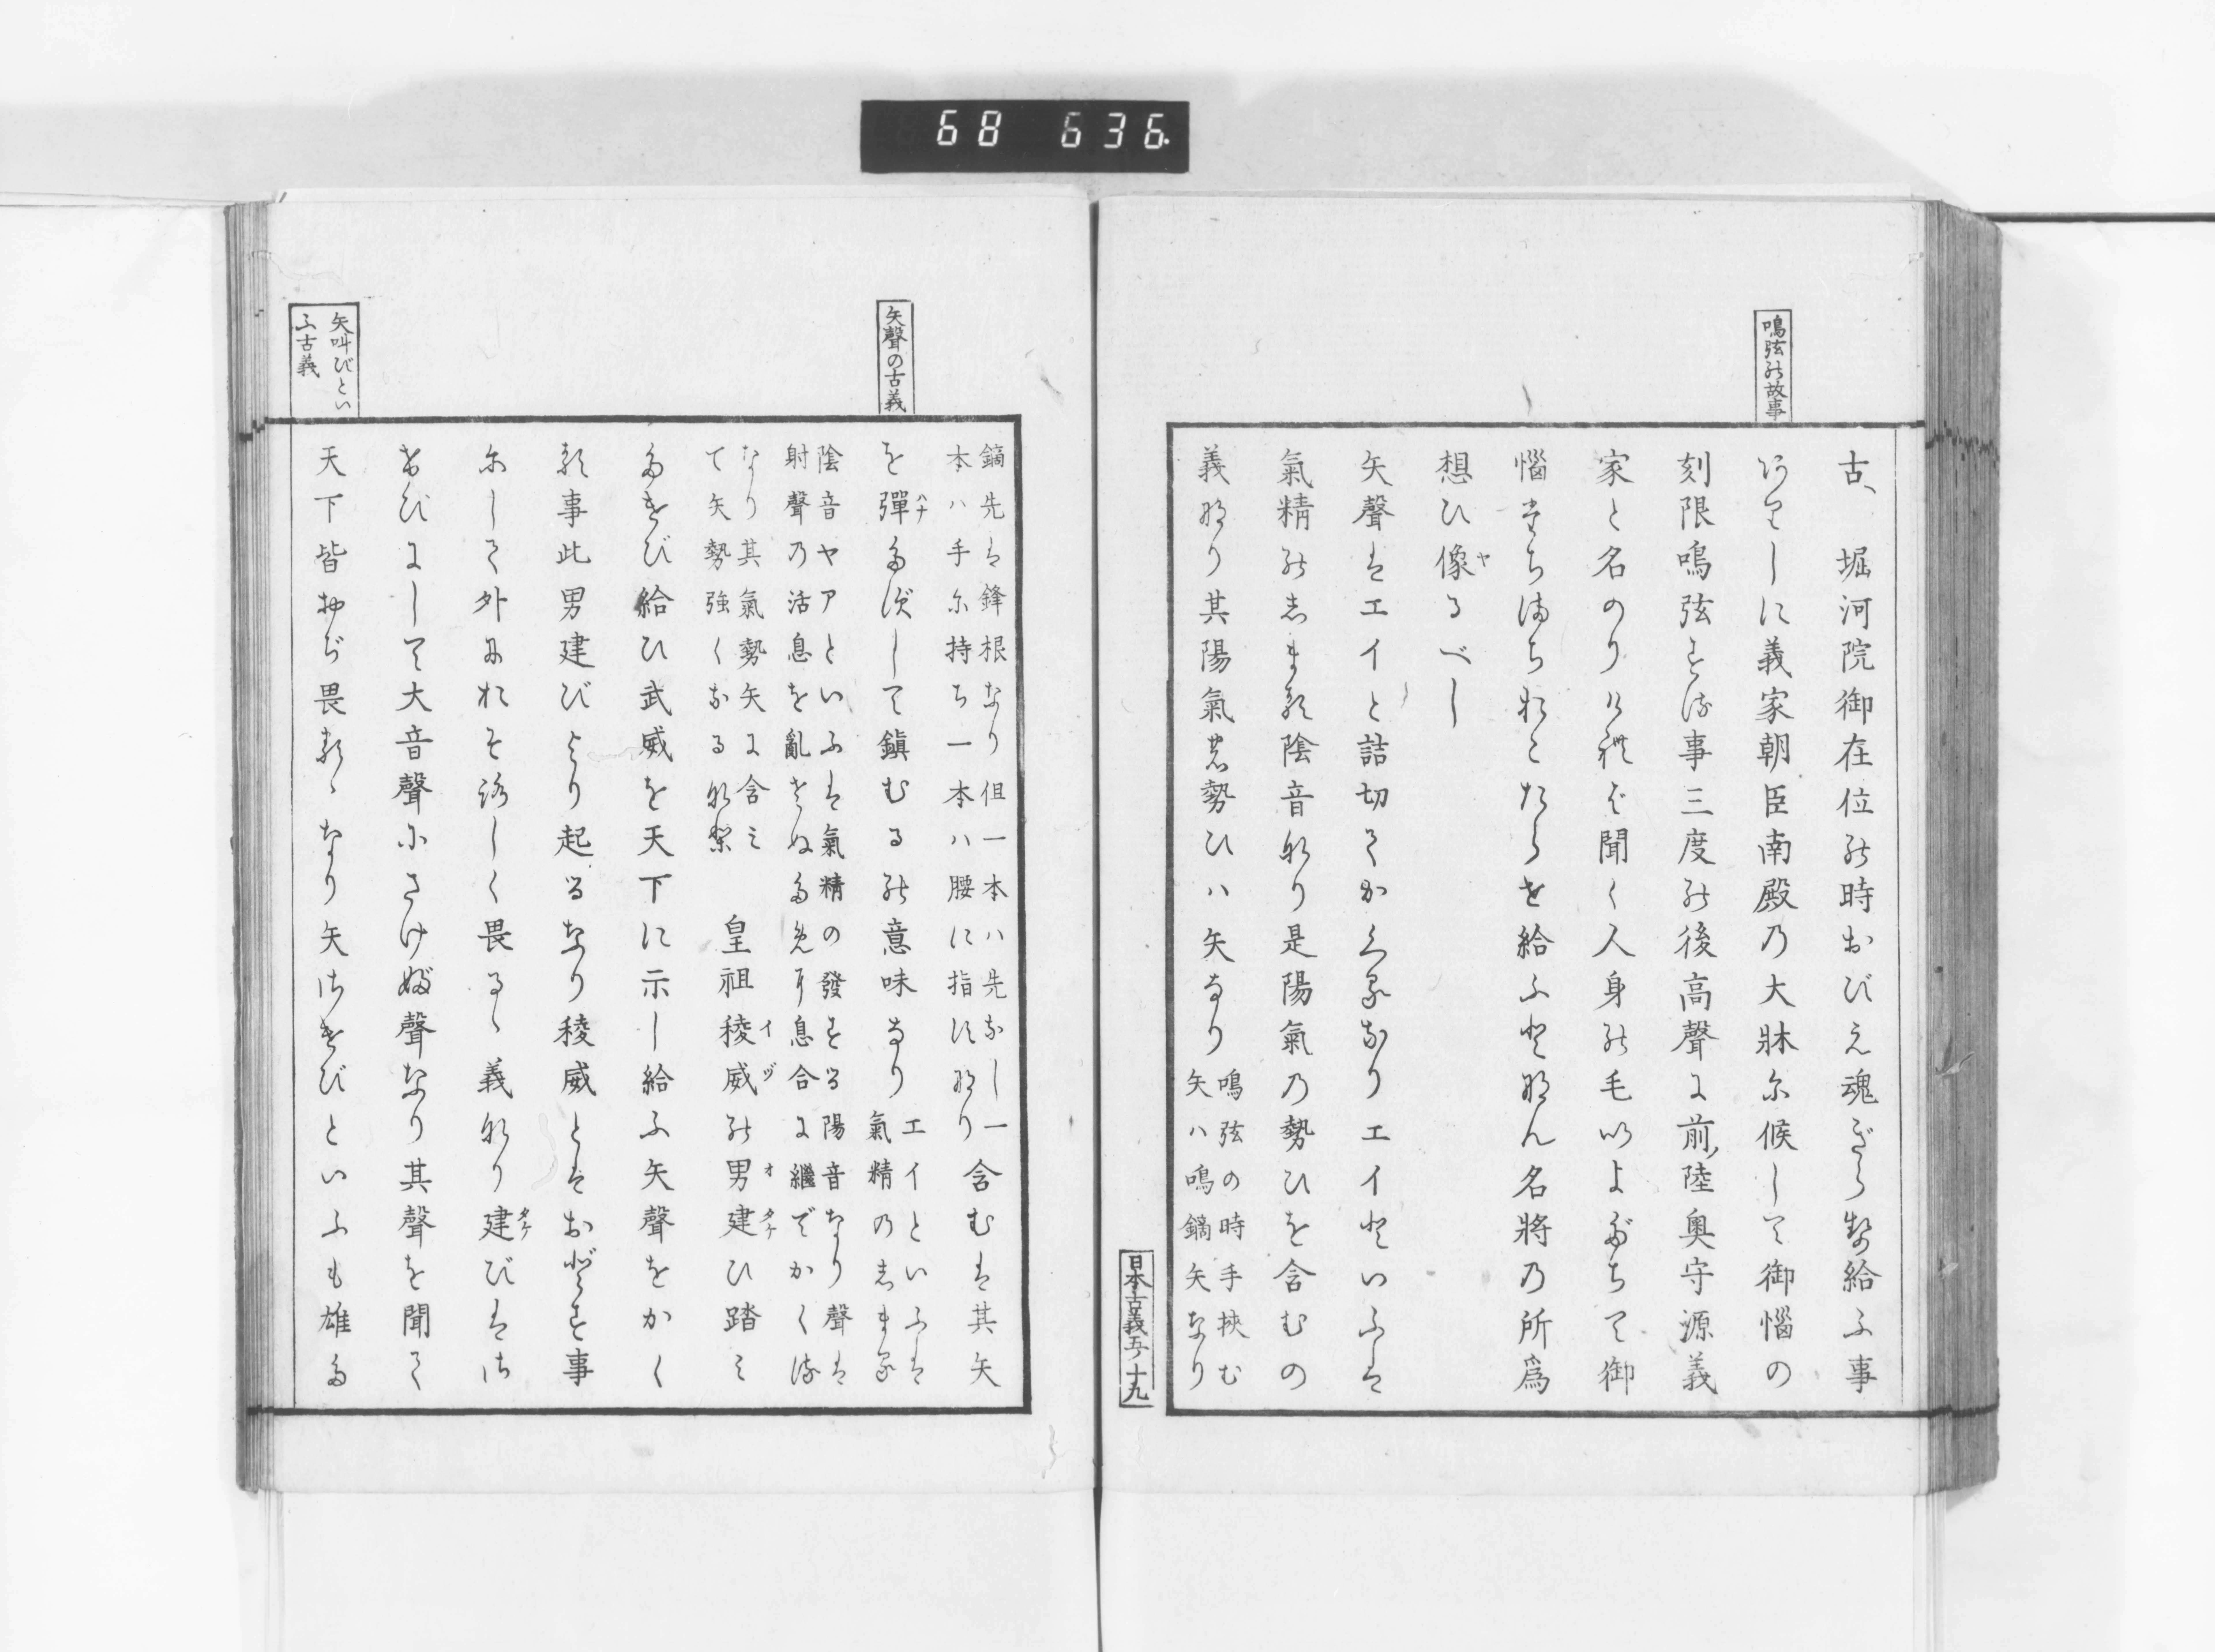 68 636
鳴弦の故事
古、堀河院御在位の時おびえ魂ぎらせ給ふ事
ありしに義家朝臣南殿の大牀に候して御惱の
刻限鳴弦する事三度の後高聲に前陸奥守源義
家と名のりければ聞く人身の毛いよだちて御
惱たちまちおこたらせ給ふとなん名將の所爲
想ひ像るべし
ヤ
矢聲はエイと詰切てかくるなりエイといふは
氣精のしまる陰音なり是陽氣の勢ひを含むの
義なり其陽氣の勢ひハ矢なり
鳴弦の時手挾む
矢ハ鳴鏑矢なり
日本古義五ノ十九
鏑先は鋒根なり但一本ハ先なし一
本ハ手に持ち一本ハ腰に指すなり
含むは其矢
矢聲の古義
を彈たずして鎭むるの意味なり
ハナ
エイといふは
氣精のしまる
陰音ヤアといふは氣精の發する陽音なり聲は
射聲の活息を亂さぬため息合に繼でかくる
なり其氣勢矢に含み
て矢勢強くなるなり
皇祖稜威の男建ひ踏み
イヅ
オタケ
たけび給ひ武威を天下に示し給ふ矢聲をかく
る事此男建びより起るなり稜威とはおどす事
にして外におそろしく畏るゝ義なり建びはさ
タケ
けびにして大音聲にさけぶ聲なり其聲を聞て
矢叫びとい
ふ古義
天下皆おぢ畏るゝなり矢さけびといふも雄た